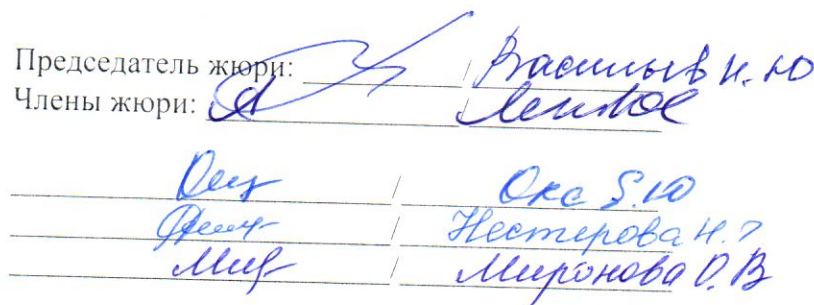 Председатель жюри: / Васильев Н. Ю
Члены жюри: /
/ Окс Б.Ю
/ Нестерова Н.
/ Миронова О. В